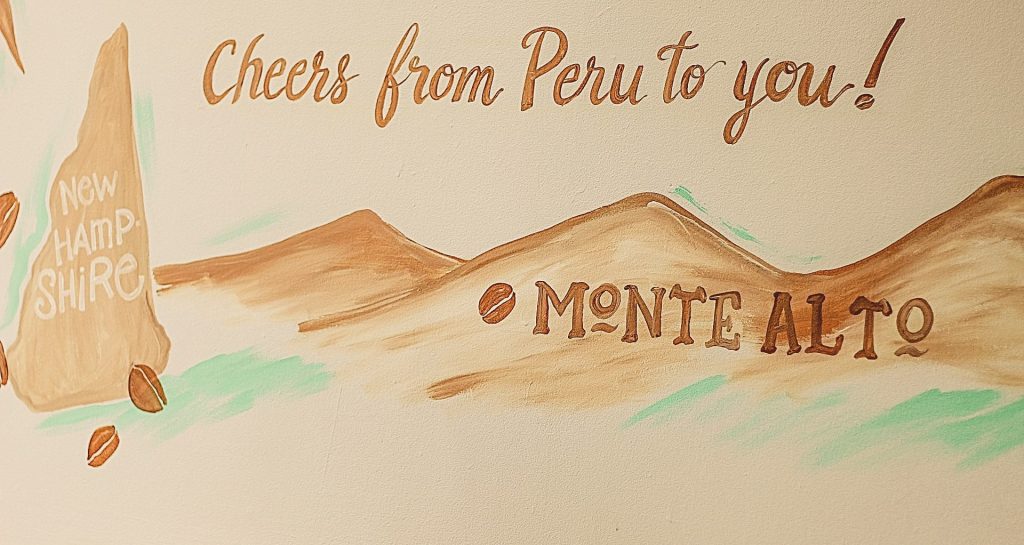 Cheers from Peru to you!
NeW
HAMP-
SHiRe
MONTE ALTO